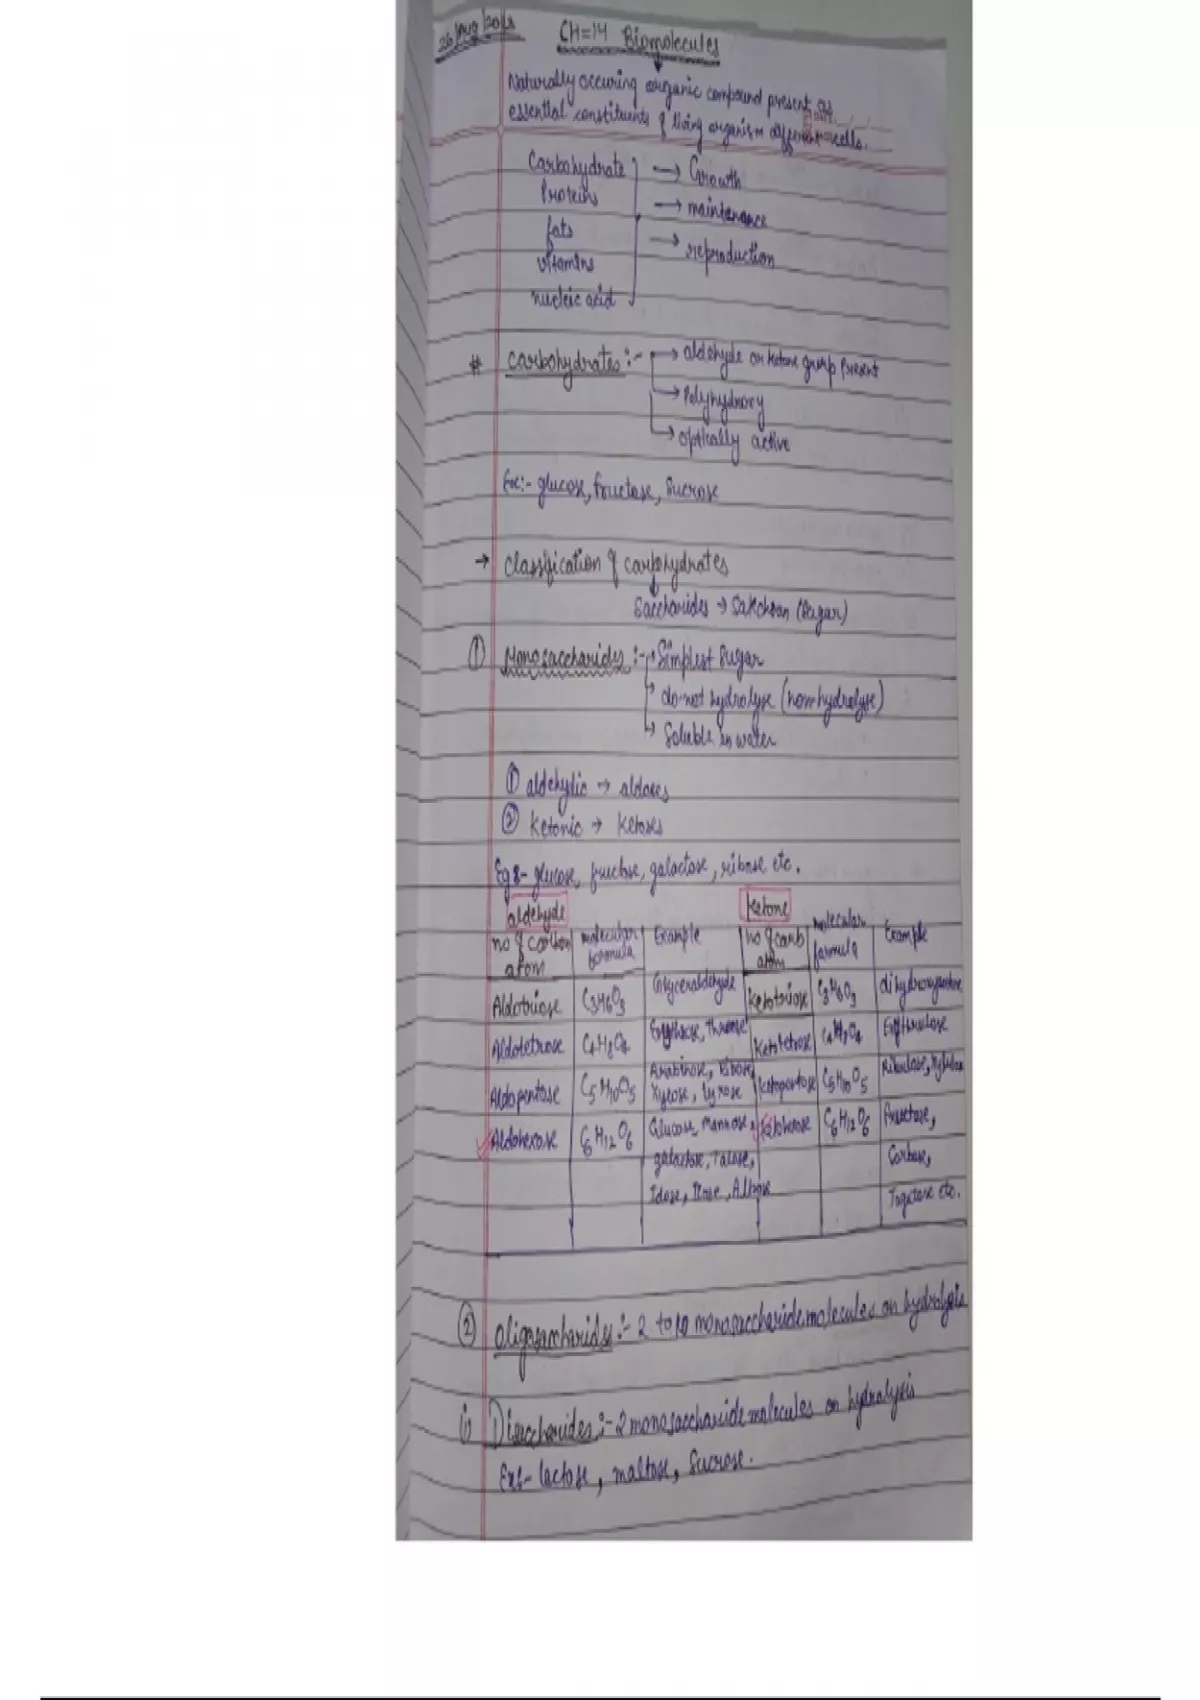 CH=14 Biomolecules
Naturally occuring organic compound present as
essential constituents of living organism different cells.
Carbohydrate → Growth
Proteins → maintenance
fats → reproduction
vitamins
nucleic acid
# Carbohydrates :- → aldehyde or ketone group present
→ Polyhydroxy
→ optically active
Ex:- glucose, fructose, Sucrose
→ Classification of carbohydrates
Saccharides → (Sugar)
① Monosaccharides :- → Simplest Sugar
→ do not hydrolyse (nonhydrolyse)
→ Soluble in water
① aldehydic → aldoses
② Ketonic → Ketoses
Eg:- glucose, fructose, galactose, ribose etc.
aldehyde Ketone
no of carbon atom | molecular formula | Example | no of carb atom | molecular formula | Example
Aldotriose | C3H6O3 | Glyceraldehyde | ketotriose | C3H6O3
Aldotetrose | C4H8O4 | Erythrose, Threose | Ketotetrose | C4H8O4 | Erythrulose
Aldopentose | C5H10O5 | Arabinose, Ribose, Xylose, Lyxose | ketopentose | C5H10O5 | Ribulose, Xylulose
Aldohexose | C6H12O6 | Glucose, Mannose, | Ketohexose | C6H12O6 | Fructose,
galactose, Talose,
Idose,
Tagatose etc.
② Oligosaccharids :- 2 to 10 monosaccharide molecules on hydrolysis
i) Disaccharides :- 2 monosaccharide molecules on hydrolysis
Ex:- lactose, maltose, Sucrose.